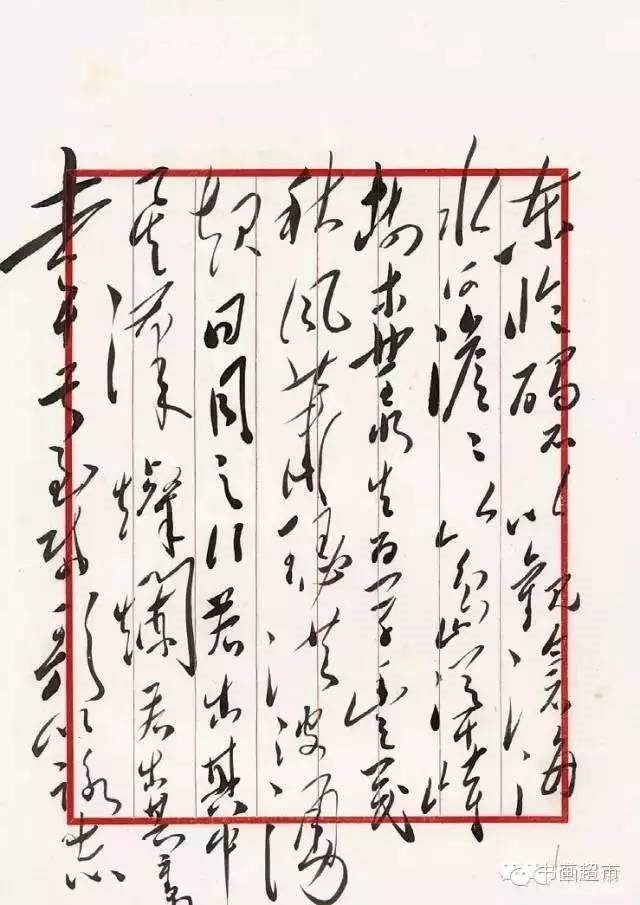 东临碣石以观沧海
水何澹澹山岛竦峙
树木丛生百草丰茂
秋风萧瑟洪波涌
起日月之行若出其中
星汉灿烂若出其里
幸甚至哉歌以咏志
书画超市